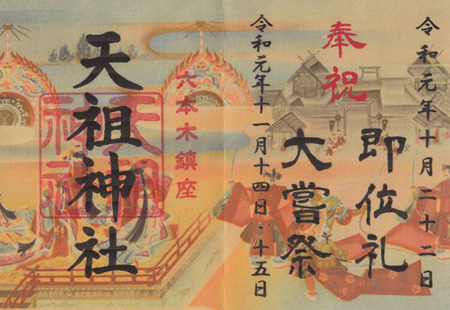 令和元年十月二十二日
奉祝
即位礼
大嘗祭
令和元年十一月十四日・十五日
六本木鎮座
天祖神社
天祖
神社